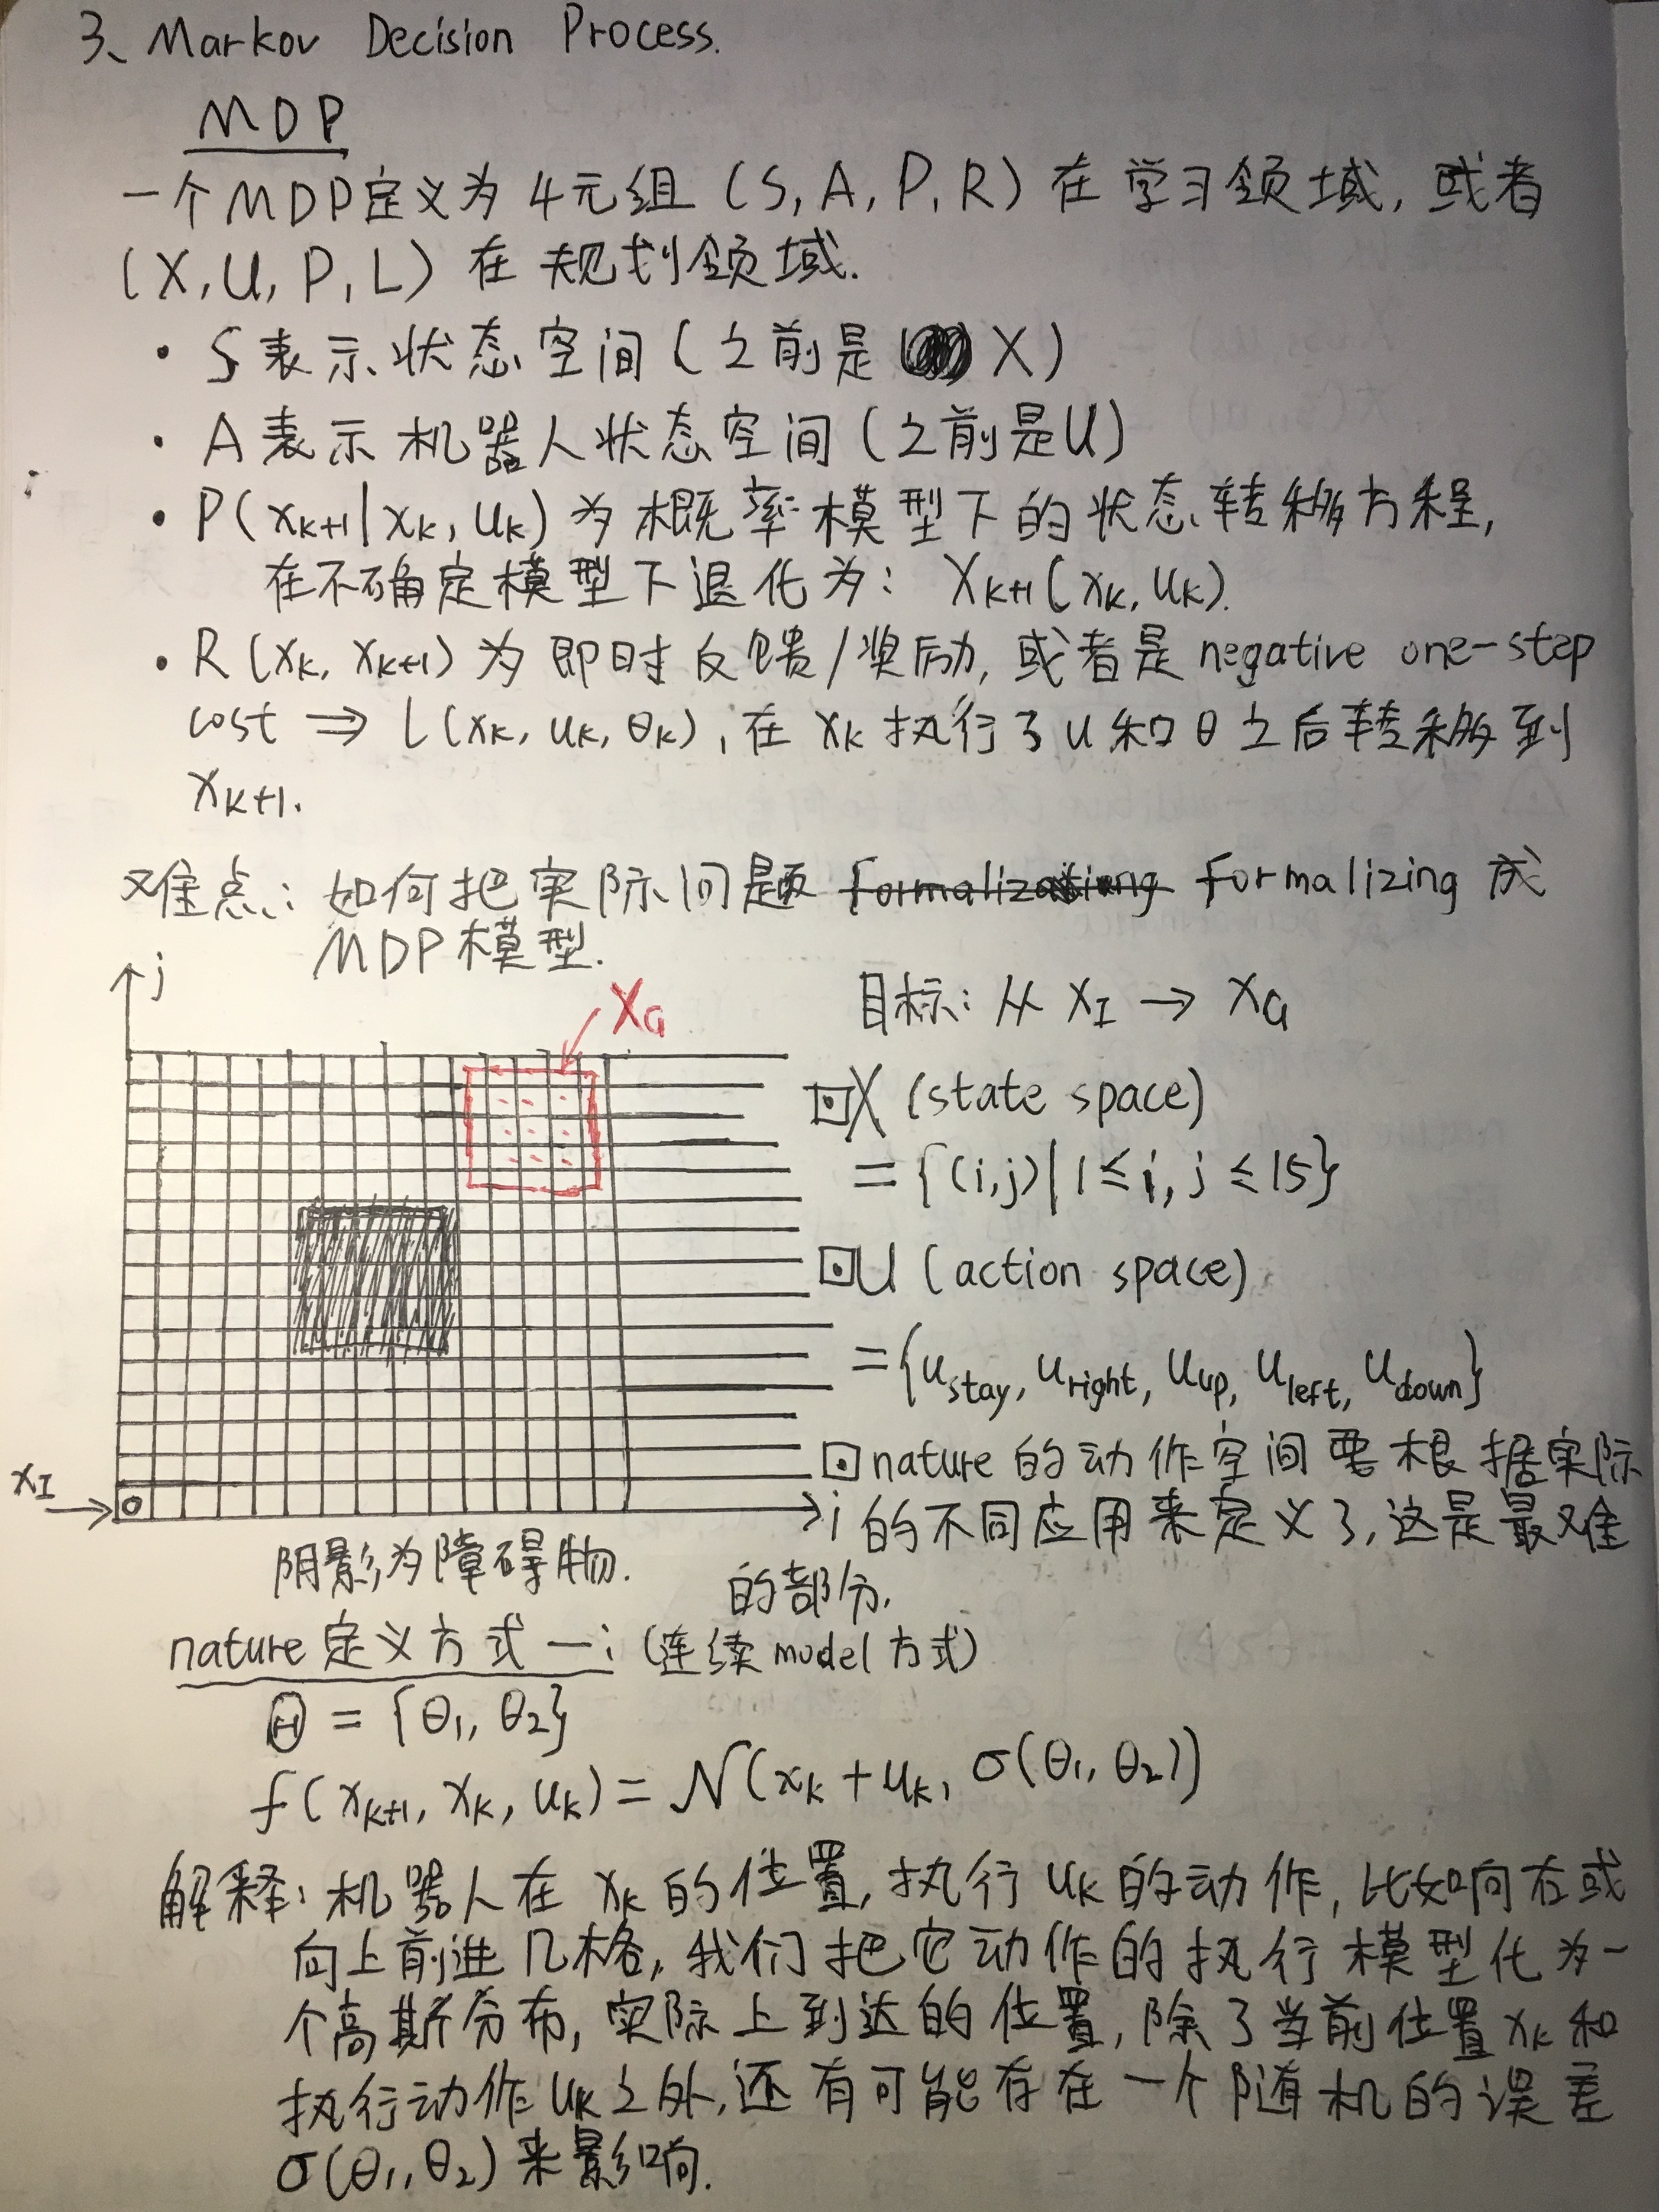 3、Markov Decision Process.
MDP
一个MDP定义为4元组 (S, A, P, R) 在学习领域, 或者
(X, U, P, L) 在规划领域.
· S表示状态空间 (之前是 X)
· A表示机器人状态空间 (之前是U)
· P(xₖ₊₁|xₖ, uₖ) 为概率模型下的状态转移方程,
在不确定模型下退化为: Xₖ₊₁(xₖ, uₖ).
· R(xₖ, xₖ₊₁) 为即时反馈/奖励, 或者是 negative one-step
cost ⇒ L(xₖ, uₖ, θₖ), 在 xₖ 执行了 u 和 θ 之后转移到
xₖ₊₁.
难点: 如何把实际问题 formalizing 成
MDP模型.
j
X_G
目标: 从 x_I → X_G
⊡X (state space)
= {(i,j)|1≤i, j≤15}
⊡U (action space)
={u_stay, u_right, u_up, u_left, u_down}
⊡nature 的动作空间要根据实际
的不同应用来定义了, 这是最难
的部分.
x_I
i
阴影为障碍物.
nature定义方式一: (连续model方式)
Θ = {θ₁, θ₂}
f(xₖ₊₁, xₖ, uₖ) = N(xₖ+uₖ, σ(θ₁, θ₂))
解释: 机器人在 xₖ 的位置, 执行 uₖ 的动作, 比如向右或
向上前进几格, 我们把它动作的执行模型化为一
个高斯分布, 实际上到达的位置, 除了当前位置 xₖ 和
执行动作 uₖ 之外, 还有可能存在一个随机的误差
σ(θ₁, θ₂) 来影响.